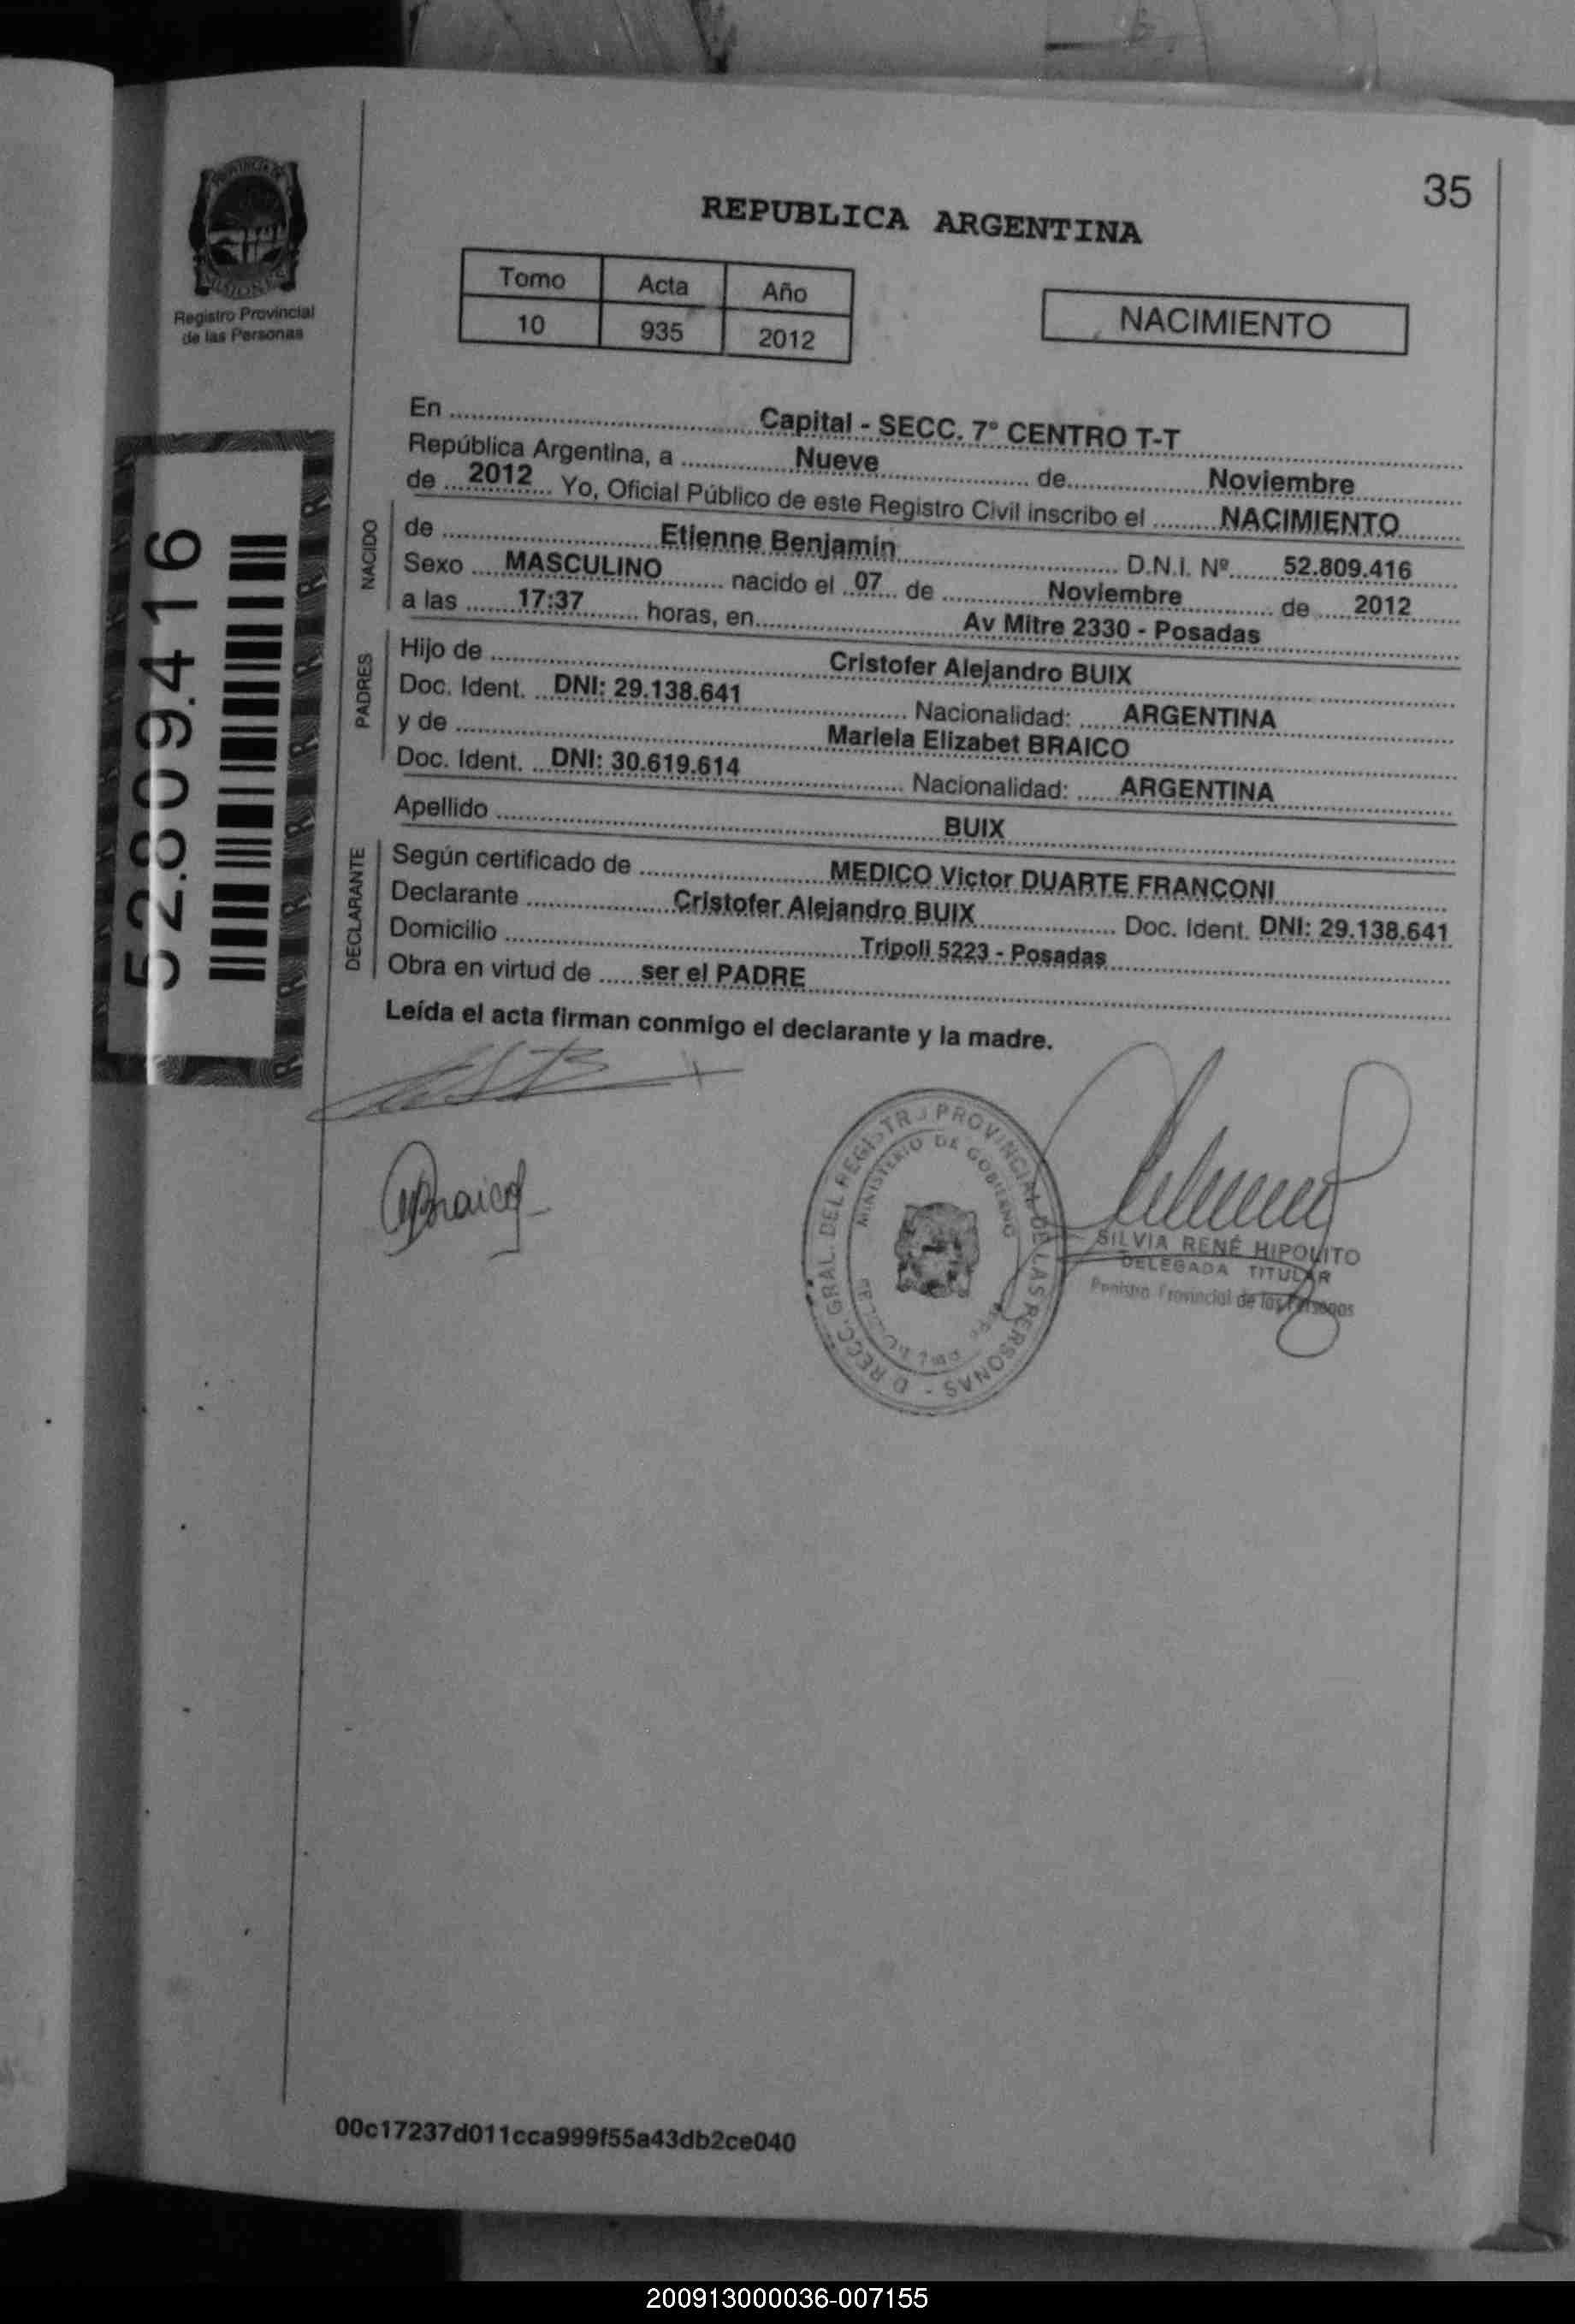 35
PROVINCIA DE
MISIONES
Registro Provincial
de las Personas
REPUBLICA ARGENTINA
Tomo Acta Año
10 935 2012
NACIMIENTO
52.809.416
En ........ Capital - SECC. 7º CENTRO T-T
República Argentina, a ........ Nueve ........ de ........ Noviembre
de ... 2012 ... Yo, Oficial Público de este Registro Civil inscribo el ........ NACIMIENTO
NACIDO
de ........ Etienne Benjamin ........ D.N.I. Nº ........ 52.809.416
Sexo .... MASCULINO ........ nacido el .. 07 ... de ........ Noviembre ........ de .... 2012
a las ....... 17:37 ........ horas, en ........ Av Mitre 2330 - Posadas
PADRES
Hijo de ........ Cristofer Alejandro BUIX
Doc. Ident. .. DNI: 29.138.641 ........ Nacionalidad: ...... ARGENTINA
y de ........ Mariela Elizabet BRAICO
Doc. Ident. .. DNI: 30.619.614 ........ Nacionalidad: ..... ARGENTINA
Apellido ........ BUIX
DECLARANTE
Según certificado de ........ MEDICO Victor DUARTE FRANCONI
Declarante ........ Cristofer Alejandro BUIX ........ Doc. Ident. DNI: 29.138.641
Domicilio ........ Tripoli 5223 - Posadas
Obra en virtud de ...... ser el PADRE
Leída el acta firman conmigo el declarante y la madre.
Braico
D RECC. GRAL. DEL REGISTRO PROVINCIAL DE LAS PERSONAS -
MINISTERIO DE GOBIERNO
SILVIA RENÉ HIPOLITO
DELEGADA TITULAR
Registro Provincial de las Personas
00c17237d011cca999f55a43db2ce040
200913000036-007155